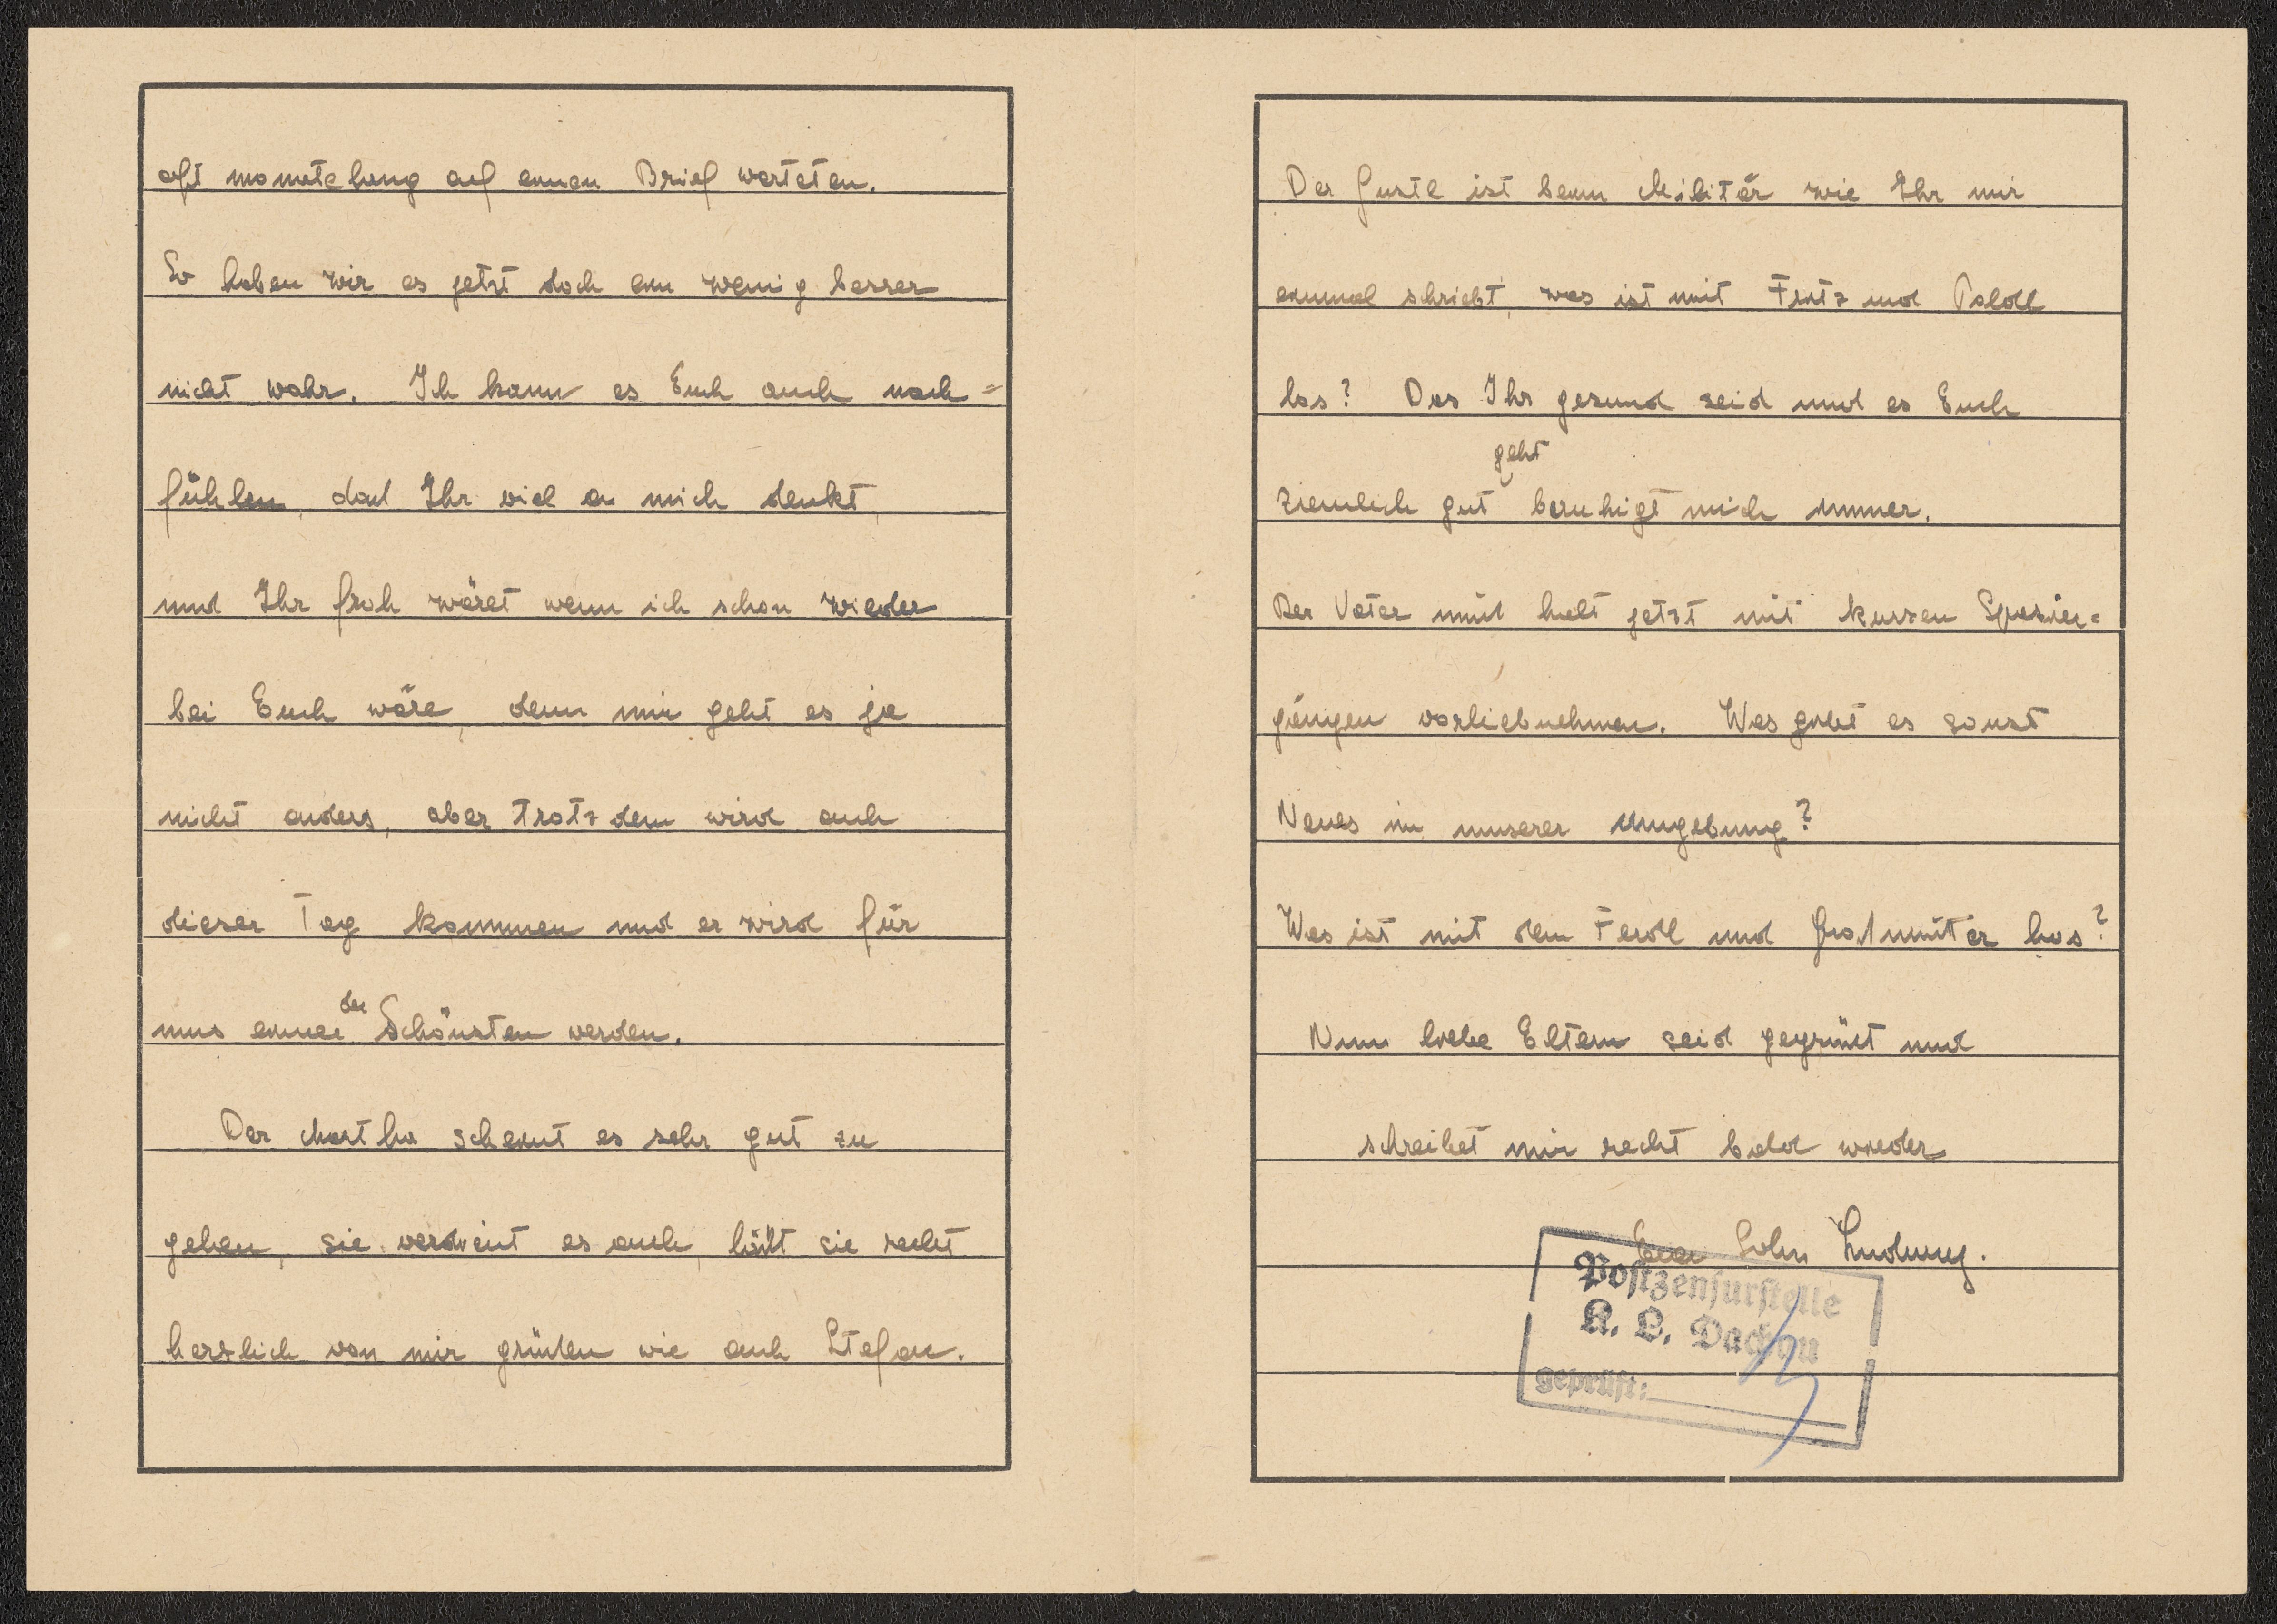 oft monatelang auf einen Brief warteten.
So haben wir es jetzt doch ein wenig besser
nicht wahr. Ich kann es Euch auch nach=
fühlen, daß Ihr viel a mich denkt,
und Ihr froh wäret wenn ich schon wieder
bei Euch wäre, denn mir geht es ja
nicht anders, aber trotzdem wird auch
dieser Tag kommen und er wird für
der
uns einer Schönsten werden.
Der Martha scheint es sehr gut zu
gehen, sie verdient es auch, läßt sie recht
herzlich von mir grüßen wie auch Stefan.
Der Gustl ist beim Militär wie Ihr mir
einmal schriebt, was ist mit Fritz und Poldl
los? Das Ihr gesund seid und es Euch
geht
ziemlich gut beruhigt mich immer.
Der Vater muß halt jetzt mit kurzen Spazier=
gängen vorliebnehmen. Was gibt es sonst
Neues in unserer Umgebung?
Was ist mit dem Ferdl und Großmutter los?
Nun liebe Eltern seid gegrüßt und
schreibet mir recht bald wieder
Euer Sohn Ludwig.
Postzensurstelle
K. L. Dachau
geprüft: